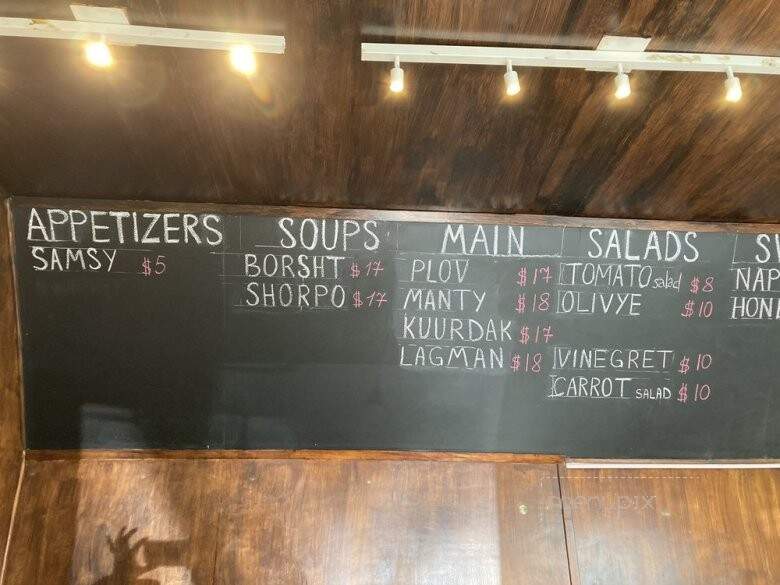 APPETIZERS
SAMSY $5
SOUPS
BORSHT $17
SHORPO $17
MAIN
PLOV $17
MANTY $18
KUURDAK $17
LAGMAN $18
SALADS
TOMATO salad $8
OLIVYE $10
VINEGRET $10
CARROT SALAD $10
SW
NAP
HON
menupix